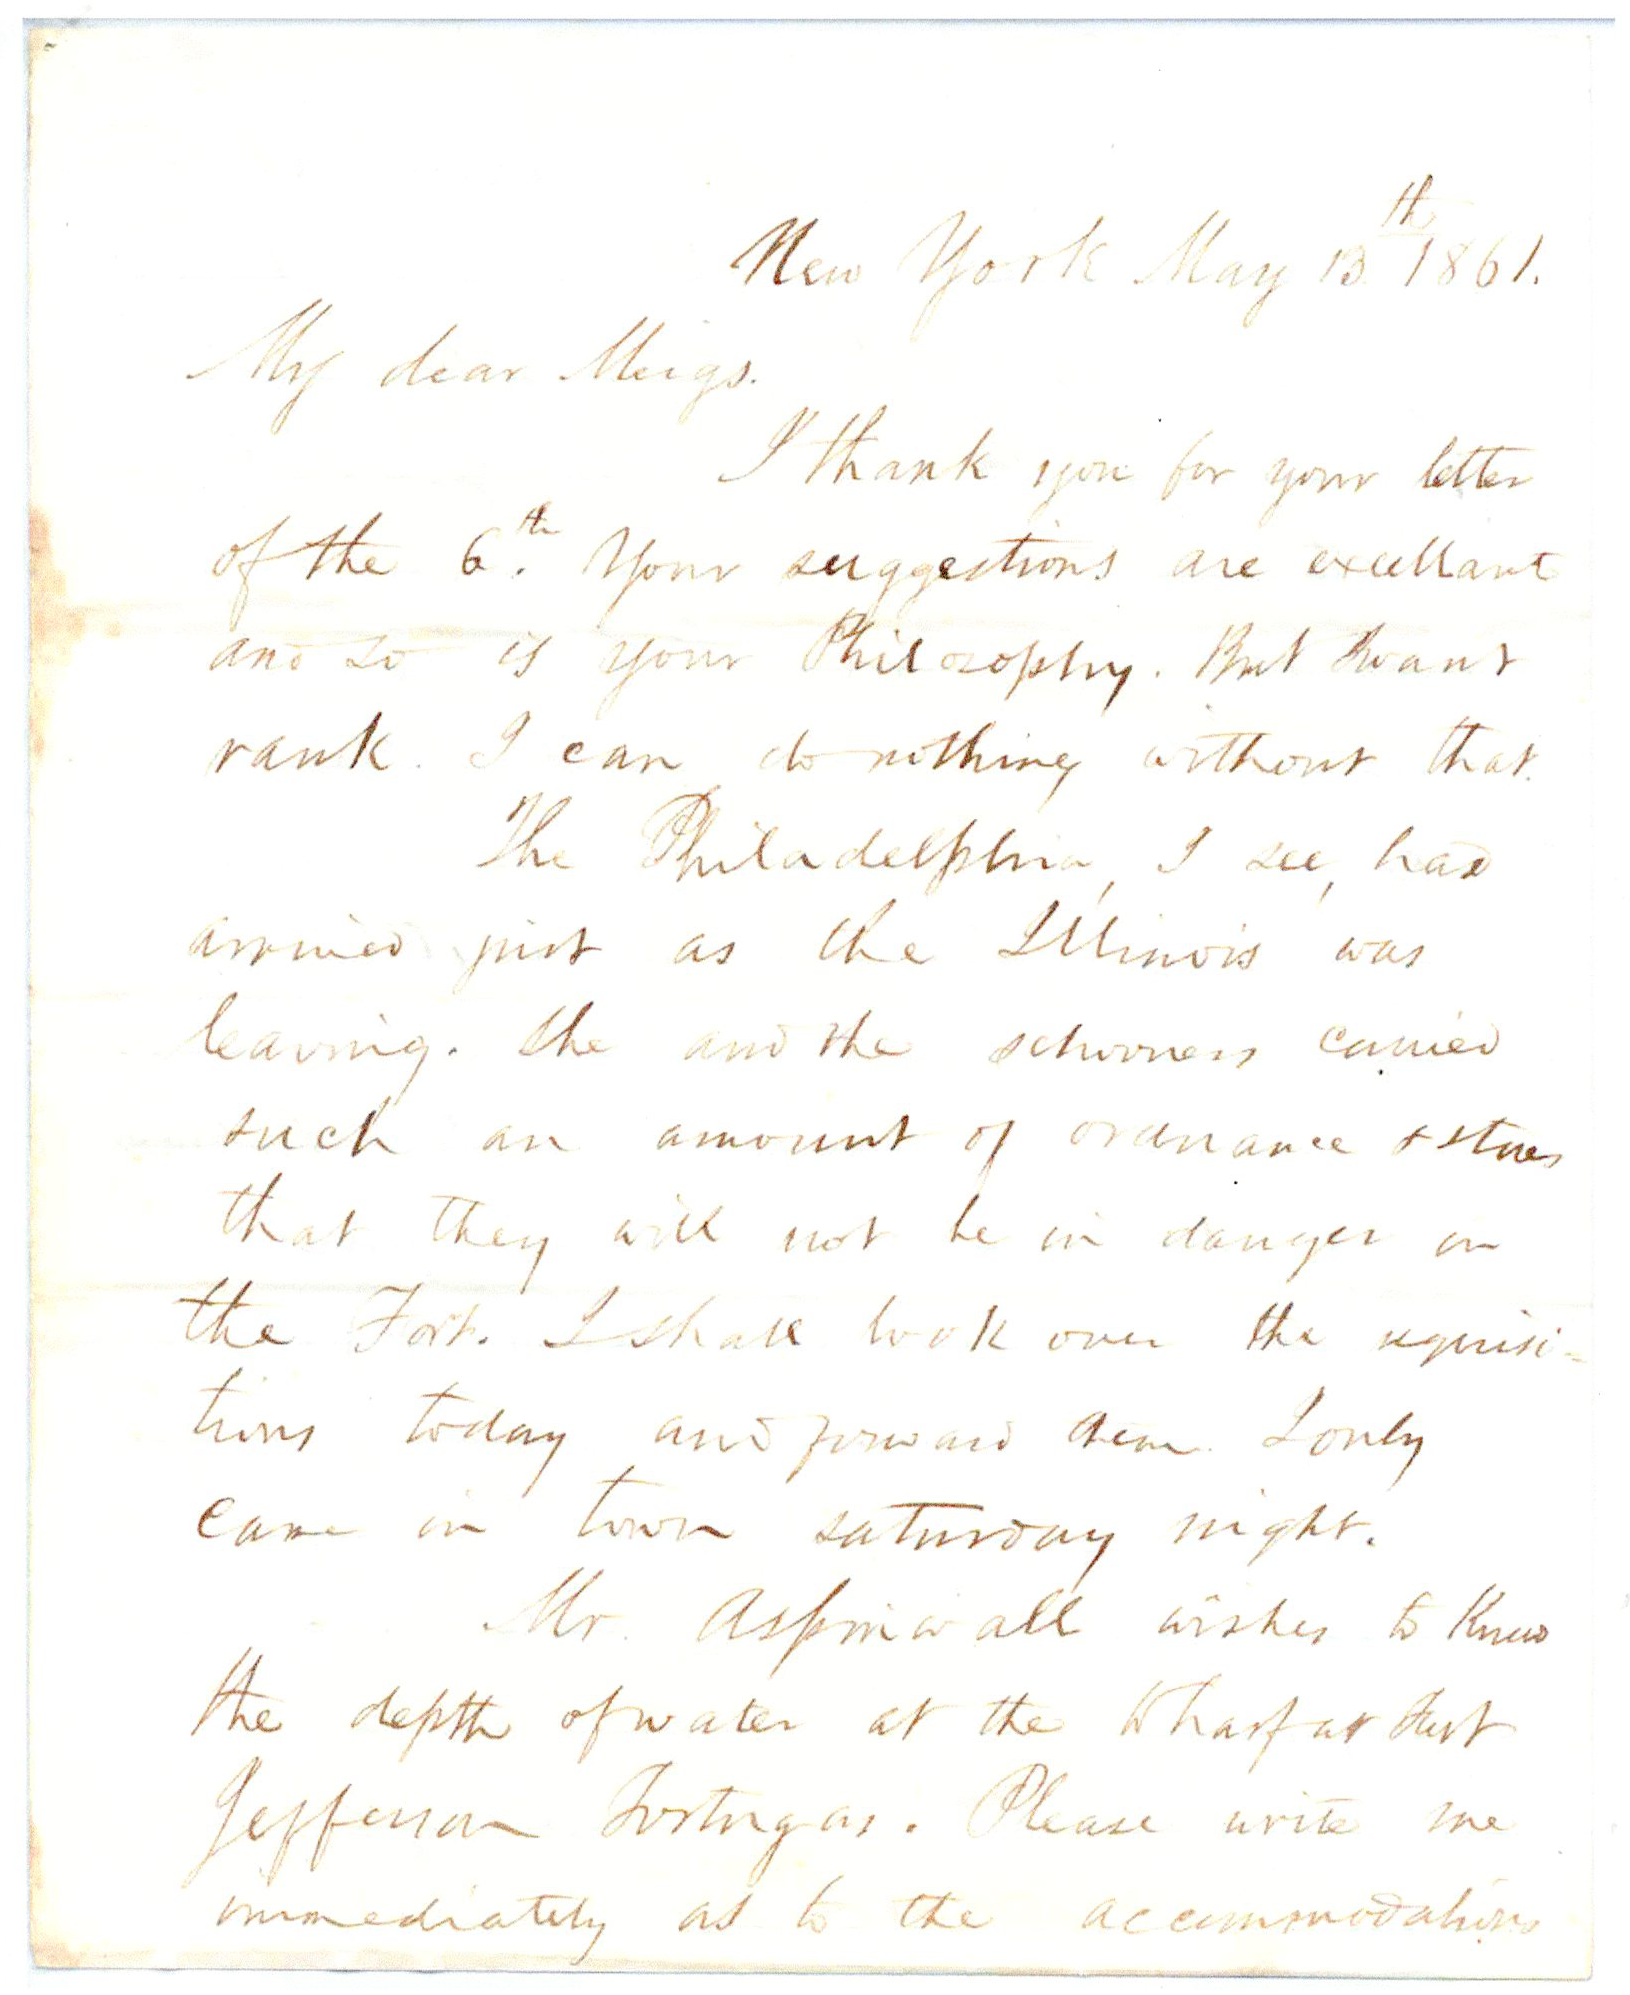 New York May 13th 1861.
My dear Meigs.
I thank you for your letter
of the 6th. Your suggestions are excellant
and so is your Philosophy. But I want
rank. I can do nothing without that.
The Philadelphia, I see, had
arrived just as the Illinois was
leaving. She and the schooners carried
such an amount of ordnance & stores
that they will not be in danger in
the Fort. I shall look over the requisi-
tions today and forward them. I only
came in town saturday night.
Mr. Aspinwall wishes to Know
the depth of water at the Wharf at Fort
Jefferson Tortugas. Please write me
immediately as to the accommodations